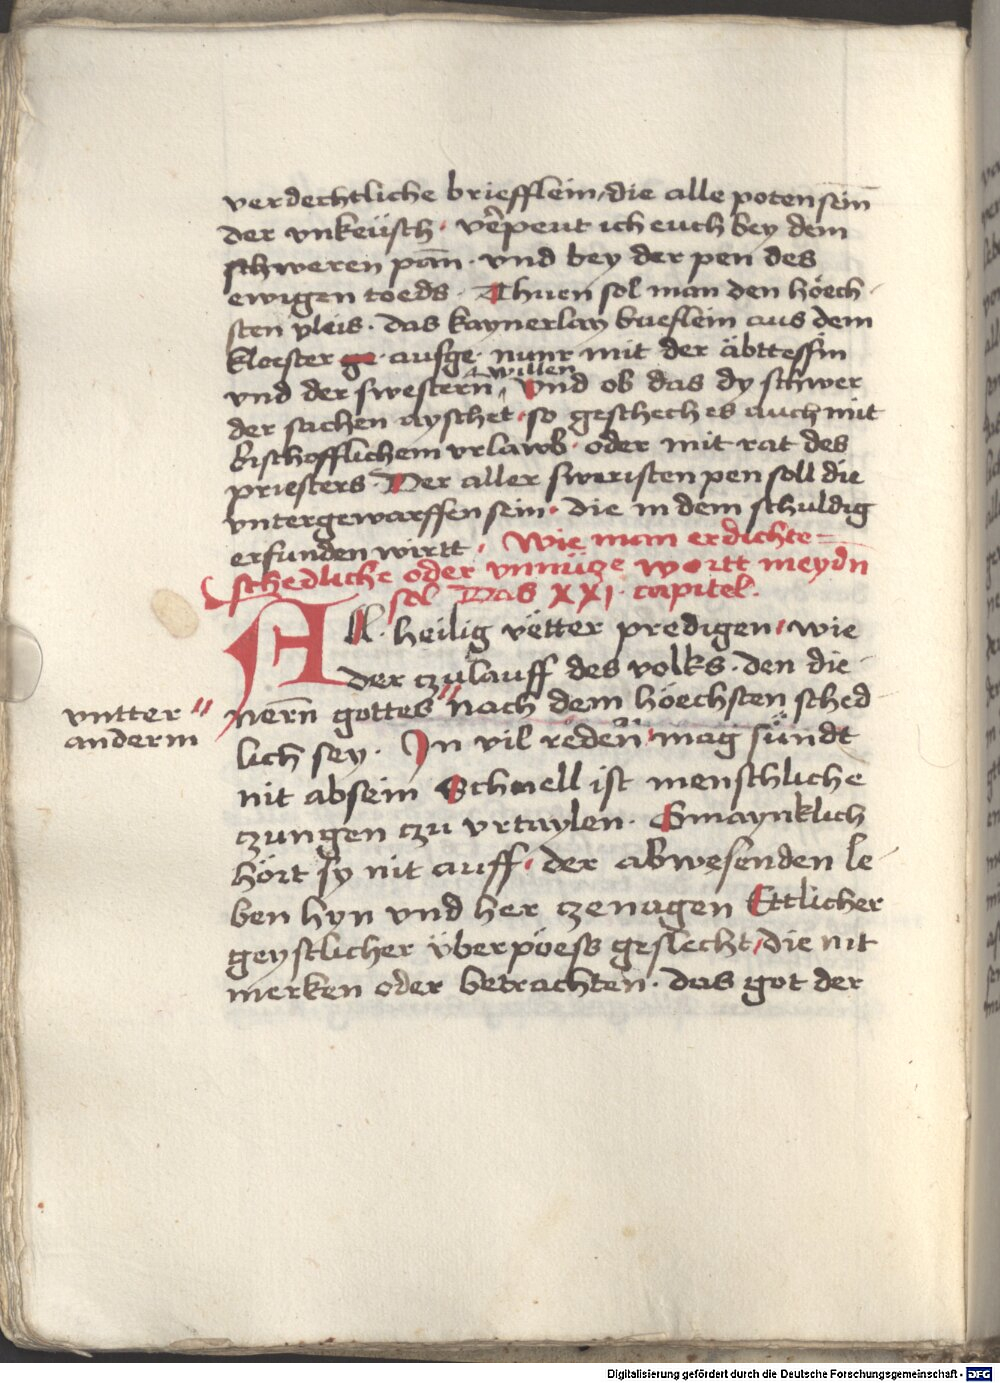 verdechtliche briefflein, die alle poten sein̄
der vnkeüsch · v̄epeut ich euch bey dem
schweren pan̄ · vnd bey der pen des
ewigen toeds · Thuen sol man den höech
sten vleis · das kaynerlay brieflein aus dem
kloester ge · ausge · nunr mit der äbttessin
willen
vnd der swestern̄, Vnd ob das dy schwer
der sachen ayschet · so geschech es auch mit
bischofflichem vrlawb · oder mit rat des
priesters · Der aller sweristen pen soll die
vntergewarffen sein · die in dem schuldig
erfunden wirtt · Wie man erdichte =
schedliche oder vnnüze wortt meydn̄
sol Das XXI · capitel.
All · heilig vëtter predigen, wie
der czulauff des volks · den die
vntter "
nern̄ gottes " nach dem höechsten sched
anderm
lich sey · In vil redenn̄, mag sündt
nit absein Schnell ist menschliche
czungen czu vrtaylen · Gmaynklich
hört sy nit auff · der abwesenden le
ben hyn vnd her czenagen Ettlicher
geystlicher überpöess geslecht, die nit
merken oder betrachten · das got der
Digitalisierung gefördert durch die Deutsche Forschungsgemeinschaft - DFG